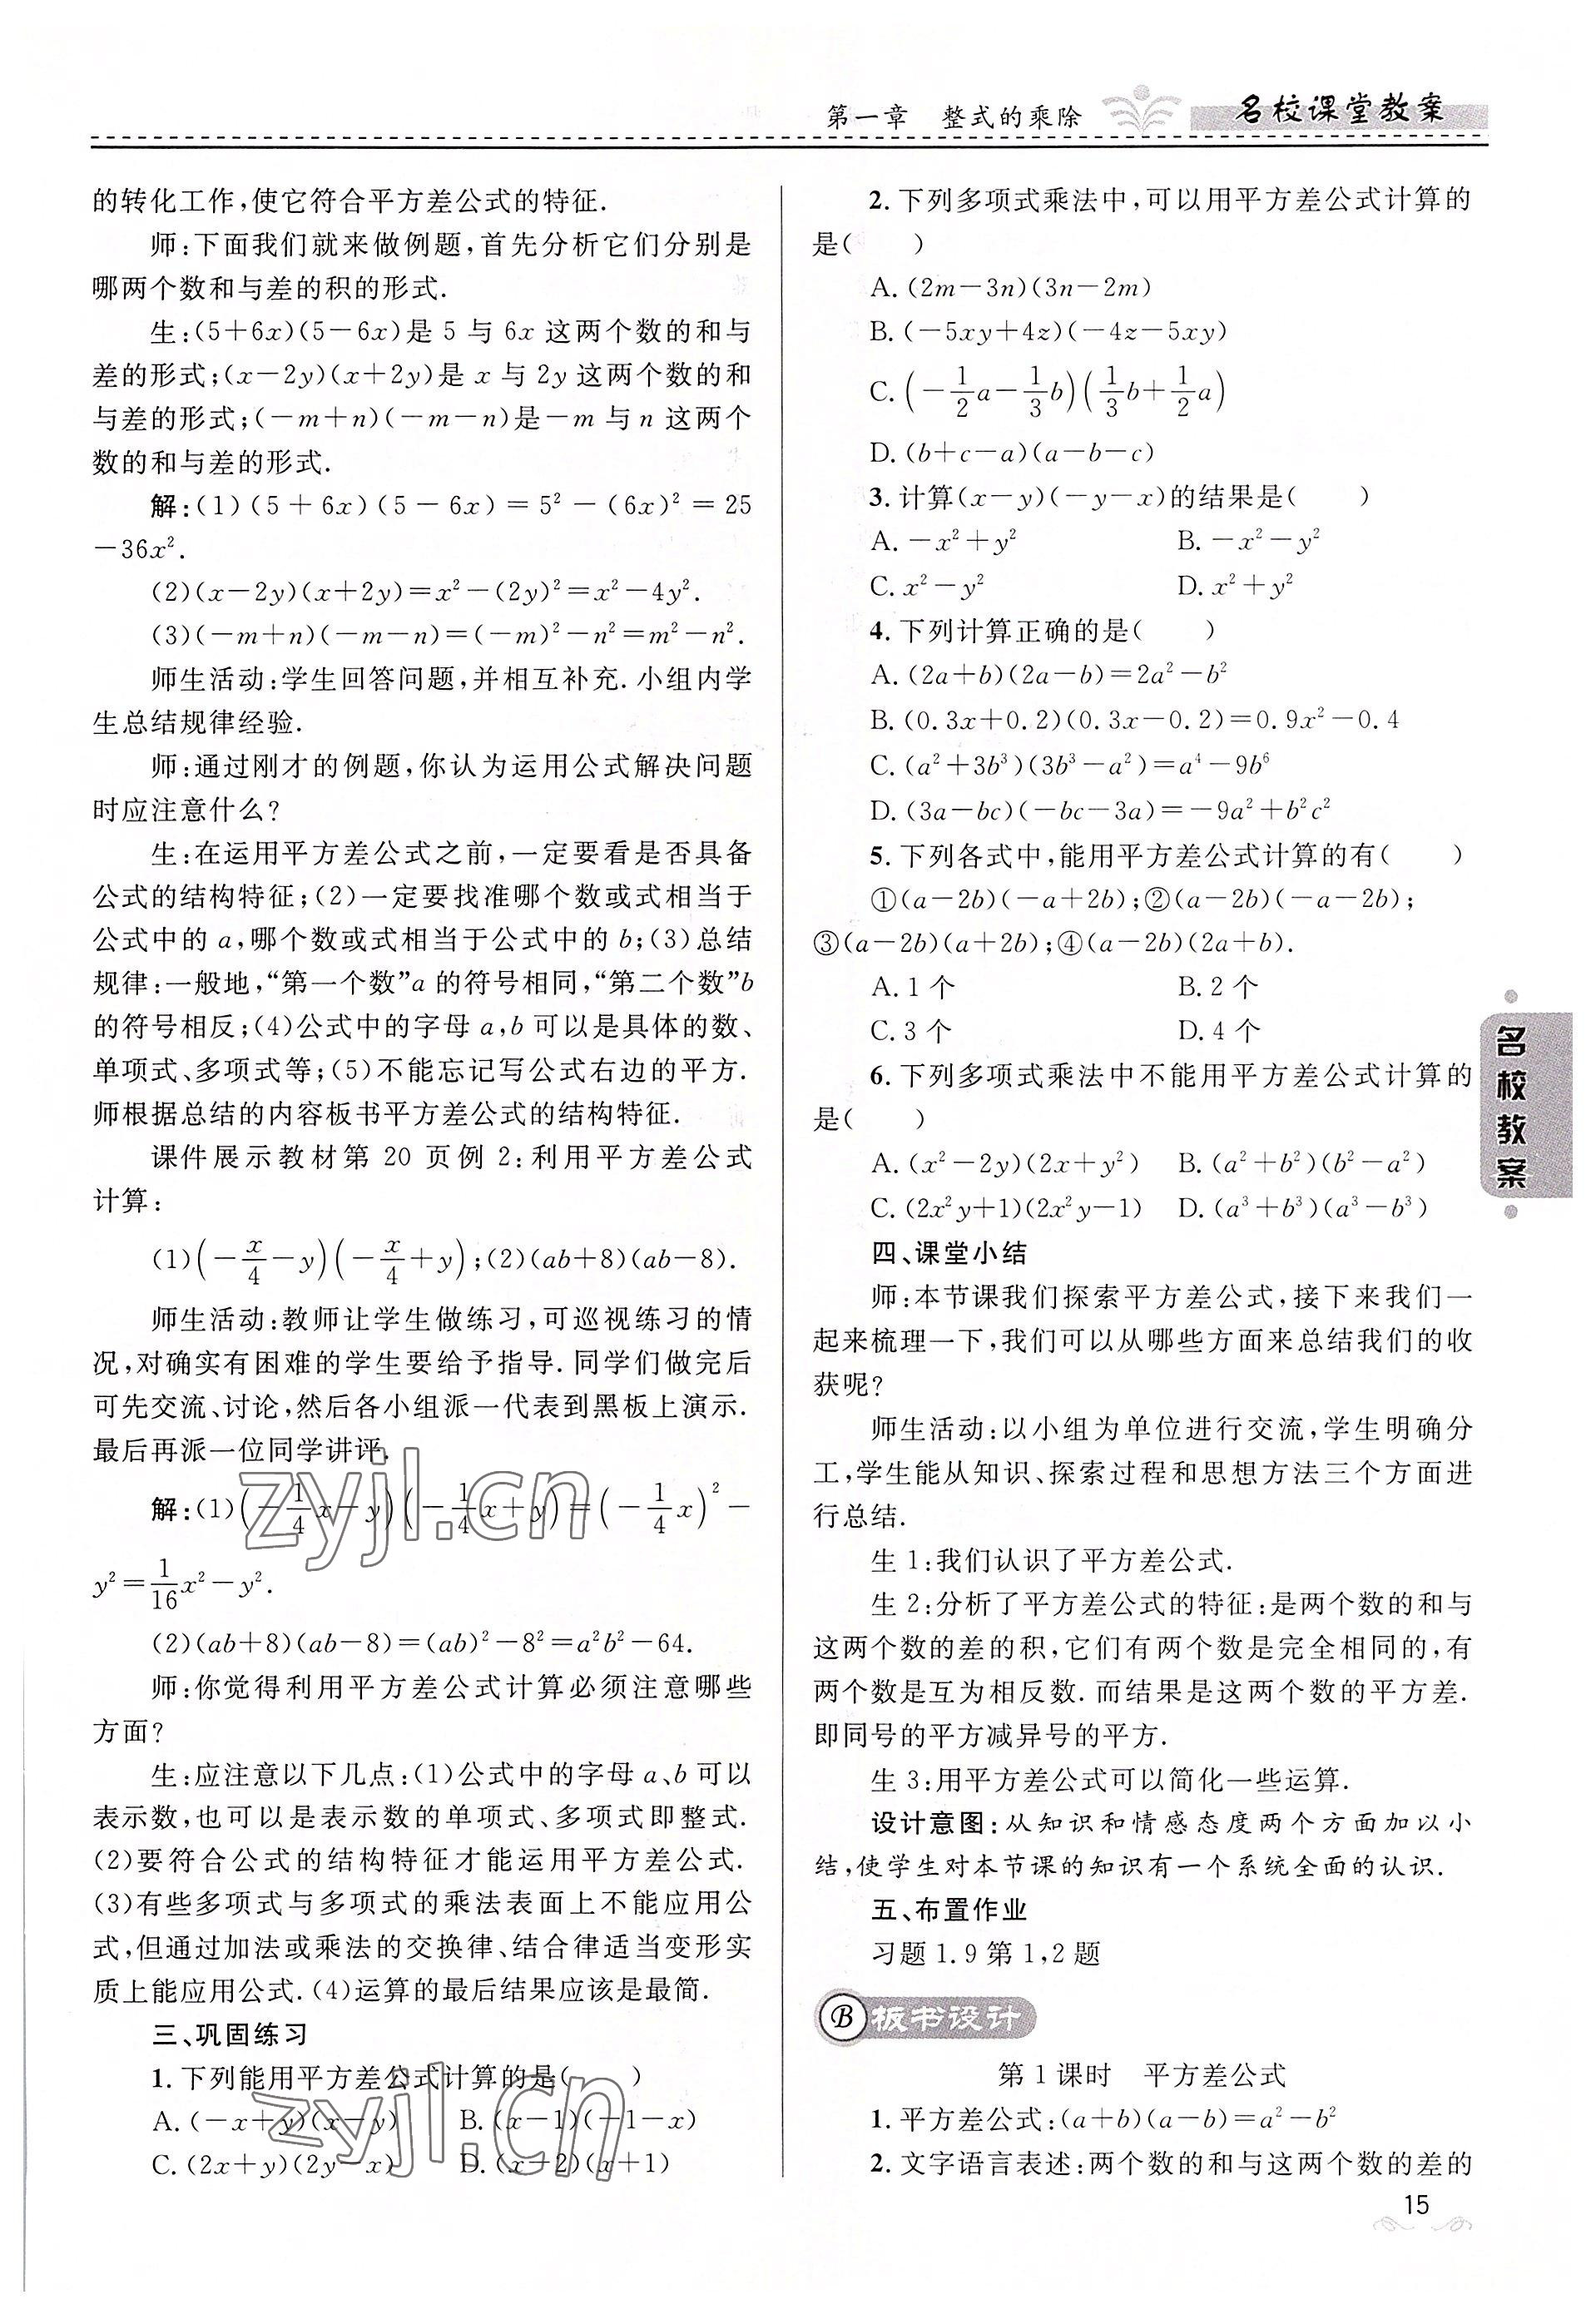 第一章 整式的乘除
名校课堂教案
的转化工作,使它符合平方差公式的特征.
师:下面我们就来做例题,首先分析它们分别是
哪两个数和与差的积的形式.
生:(5+6x)(5-6x)是 5 与 6x 这两个数的和与
差的形式;(x-2y)(x+2y)是 x 与 2y 这两个数的和
与差的形式;(-m+n)(-m-n)是-m 与 n 这两个
数的和与差的形式.
解:(1)(5+6x)(5-6x)=5²-(6x)²=25
-36x².
(2)(x-2y)(x+2y)=x²-(2y)²=x²-4y².
(3)(-m+n)(-m-n)=(-m)²-n²=m²-n².
师生活动:学生回答问题,并相互补充.小组内学
生总结规律经验.
师:通过刚才的例题,你认为运用公式解决问题
时应注意什么?
生:在运用平方差公式之前,一定要看是否具备
公式的结构特征;(2)一定要找准哪个数或式相当于
公式中的 a,哪个数或式相当于公式中的 b;(3)总结
规律:一般地,“第一个数”a 的符号相同,“第二个数”b
的符号相反;(4)公式中的字母 a,b 可以是具体的数、
单项式、多项式等;(5)不能忘记写公式右边的平方.
师根据总结的内容板书平方差公式的结构特征.
课件展示教材第 20 页例 2:利用平方差公式
计算:
(1)(-x/4-y)(-x/4+y);(2)(ab+8)(ab-8).
师生活动:教师让学生做练习,可巡视练习的情
况,对确实有困难的学生要给予指导.同学们做完后
可先交流、讨论,然后各小组派一代表到黑板上演示.
最后再派一位同学讲评.
解:(1)(-1/4x-y)(-1/4x+y)=(-1/4x)²-
y²=1/16x²-y².
(2)(ab+8)(ab-8)=(ab)²-8²=a²b²-64.
师:你觉得利用平方差公式计算必须注意哪些
方面?
生:应注意以下几点:(1)公式中的字母 a、b 可以
表示数,也可以是表示数的单项式、多项式即整式.
(2)要符合公式的结构特征才能运用平方差公式.
(3)有些多项式与多项式的乘法表面上不能应用公
式,但通过加法或乘法的交换律、结合律适当变形实
质上能应用公式.(4)运算的最后结果应该是最简.
三、巩固练习
1.下列能用平方差公式计算的是(  )
A.(-x+y)(x-y) B.(x-1)(-1-x)
C.(2x+y)(2y-x) D.(x+2)(x+1)
2.下列多项式乘法中,可以用平方差公式计算的
是(  )
A.(2m-3n)(3n-2m)
B.(-5xy+4z)(-4z-5xy)
C.(-1/2a-1/3b)(1/3b+1/2a)
D.(b+c-a)(a-b-c)
3.计算(x-y)(-y-x)的结果是(  )
A.-x²+y² B.-x²-y²
C.x²-y² D.x²+y²
4.下列计算正确的是(  )
A.(2a+b)(2a-b)=2a²-b²
B.(0.3x+0.2)(0.3x-0.2)=0.9x²-0.4
C.(a²+3b³)(3b³-a²)=a⁴-9b⁶
D.(3a-bc)(-bc-3a)=-9a²+b²c²
5.下列各式中,能用平方差公式计算的有(  )
①(a-2b)(-a+2b);②(a-2b)(-a-2b);
③(a-2b)(a+2b);④(a-2b)(2a+b).
A.1 个 B.2 个
C.3 个 D.4 个
6.下列多项式乘法中不能用平方差公式计算的
是(  )
A.(x²-2y)(2x+y²) B.(a²+b²)(b²-a²)
C.(2x²y+1)(2x²y-1) D.(a³+b³)(a³-b³)
四、课堂小结
师:本节课我们探索平方差公式,接下来我们一
起来梳理一下,我们可以从哪些方面来总结我们的收
获呢?
师生活动:以小组为单位进行交流,学生明确分
工,学生能从知识、探索过程和思想方法三个方面进
行总结.
生 1:我们认识了平方差公式.
生 2:分析了平方差公式的特征:是两个数的和与
这两个数的差的积,它们有两个数是完全相同的,有
两个数是互为相反数.而结果是这两个数的平方差.
即同号的平方减异号的平方.
生 3:用平方差公式可以简化一些运算.
设计意图:从知识和情感态度两个方面加以小
结,使学生对本节课的知识有一个系统全面的认识.
五、布置作业
习题 1.9 第 1,2 题
B 板书设计
第 1 课时 平方差公式
1.平方差公式:(a+b)(a-b)=a²-b²
2.文字语言表述:两个数的和与这两个数的差的
名校教案
15
zyjl.cn
zyjl.cn